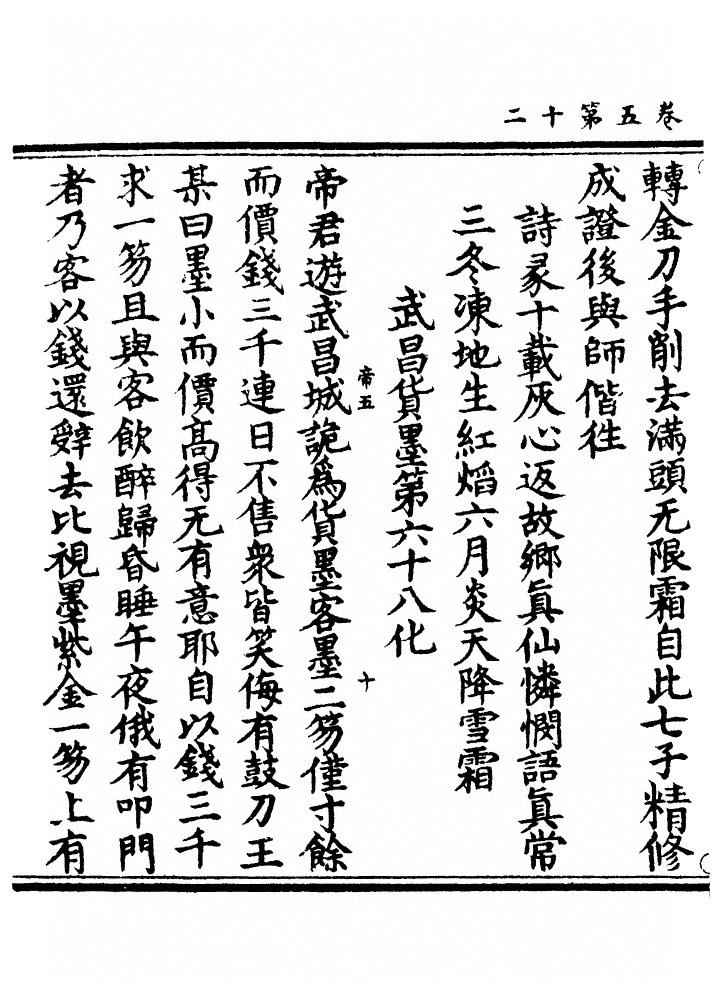 卷五第十二
轉金刀手削去滿頭无限霜自此七子精修
成證後與師偕徃
詩彖十載灰心返故鄉真仙憐憫語真常
三冬凍地生紅熖六月炎天降雪霜
武昌貨墨第六十八化
帝五
十
帝君遊武昌城詭為貨墨客墨二笏僅寸餘
而價錢三千連日不售衆皆笑侮有鼓刀王
某曰墨小而價高得无有意耶自以錢三千
求一笏且與客飲醉歸昏睡午夜俄有叩門
者乃客以錢還辤去比視墨紫金一笏上有